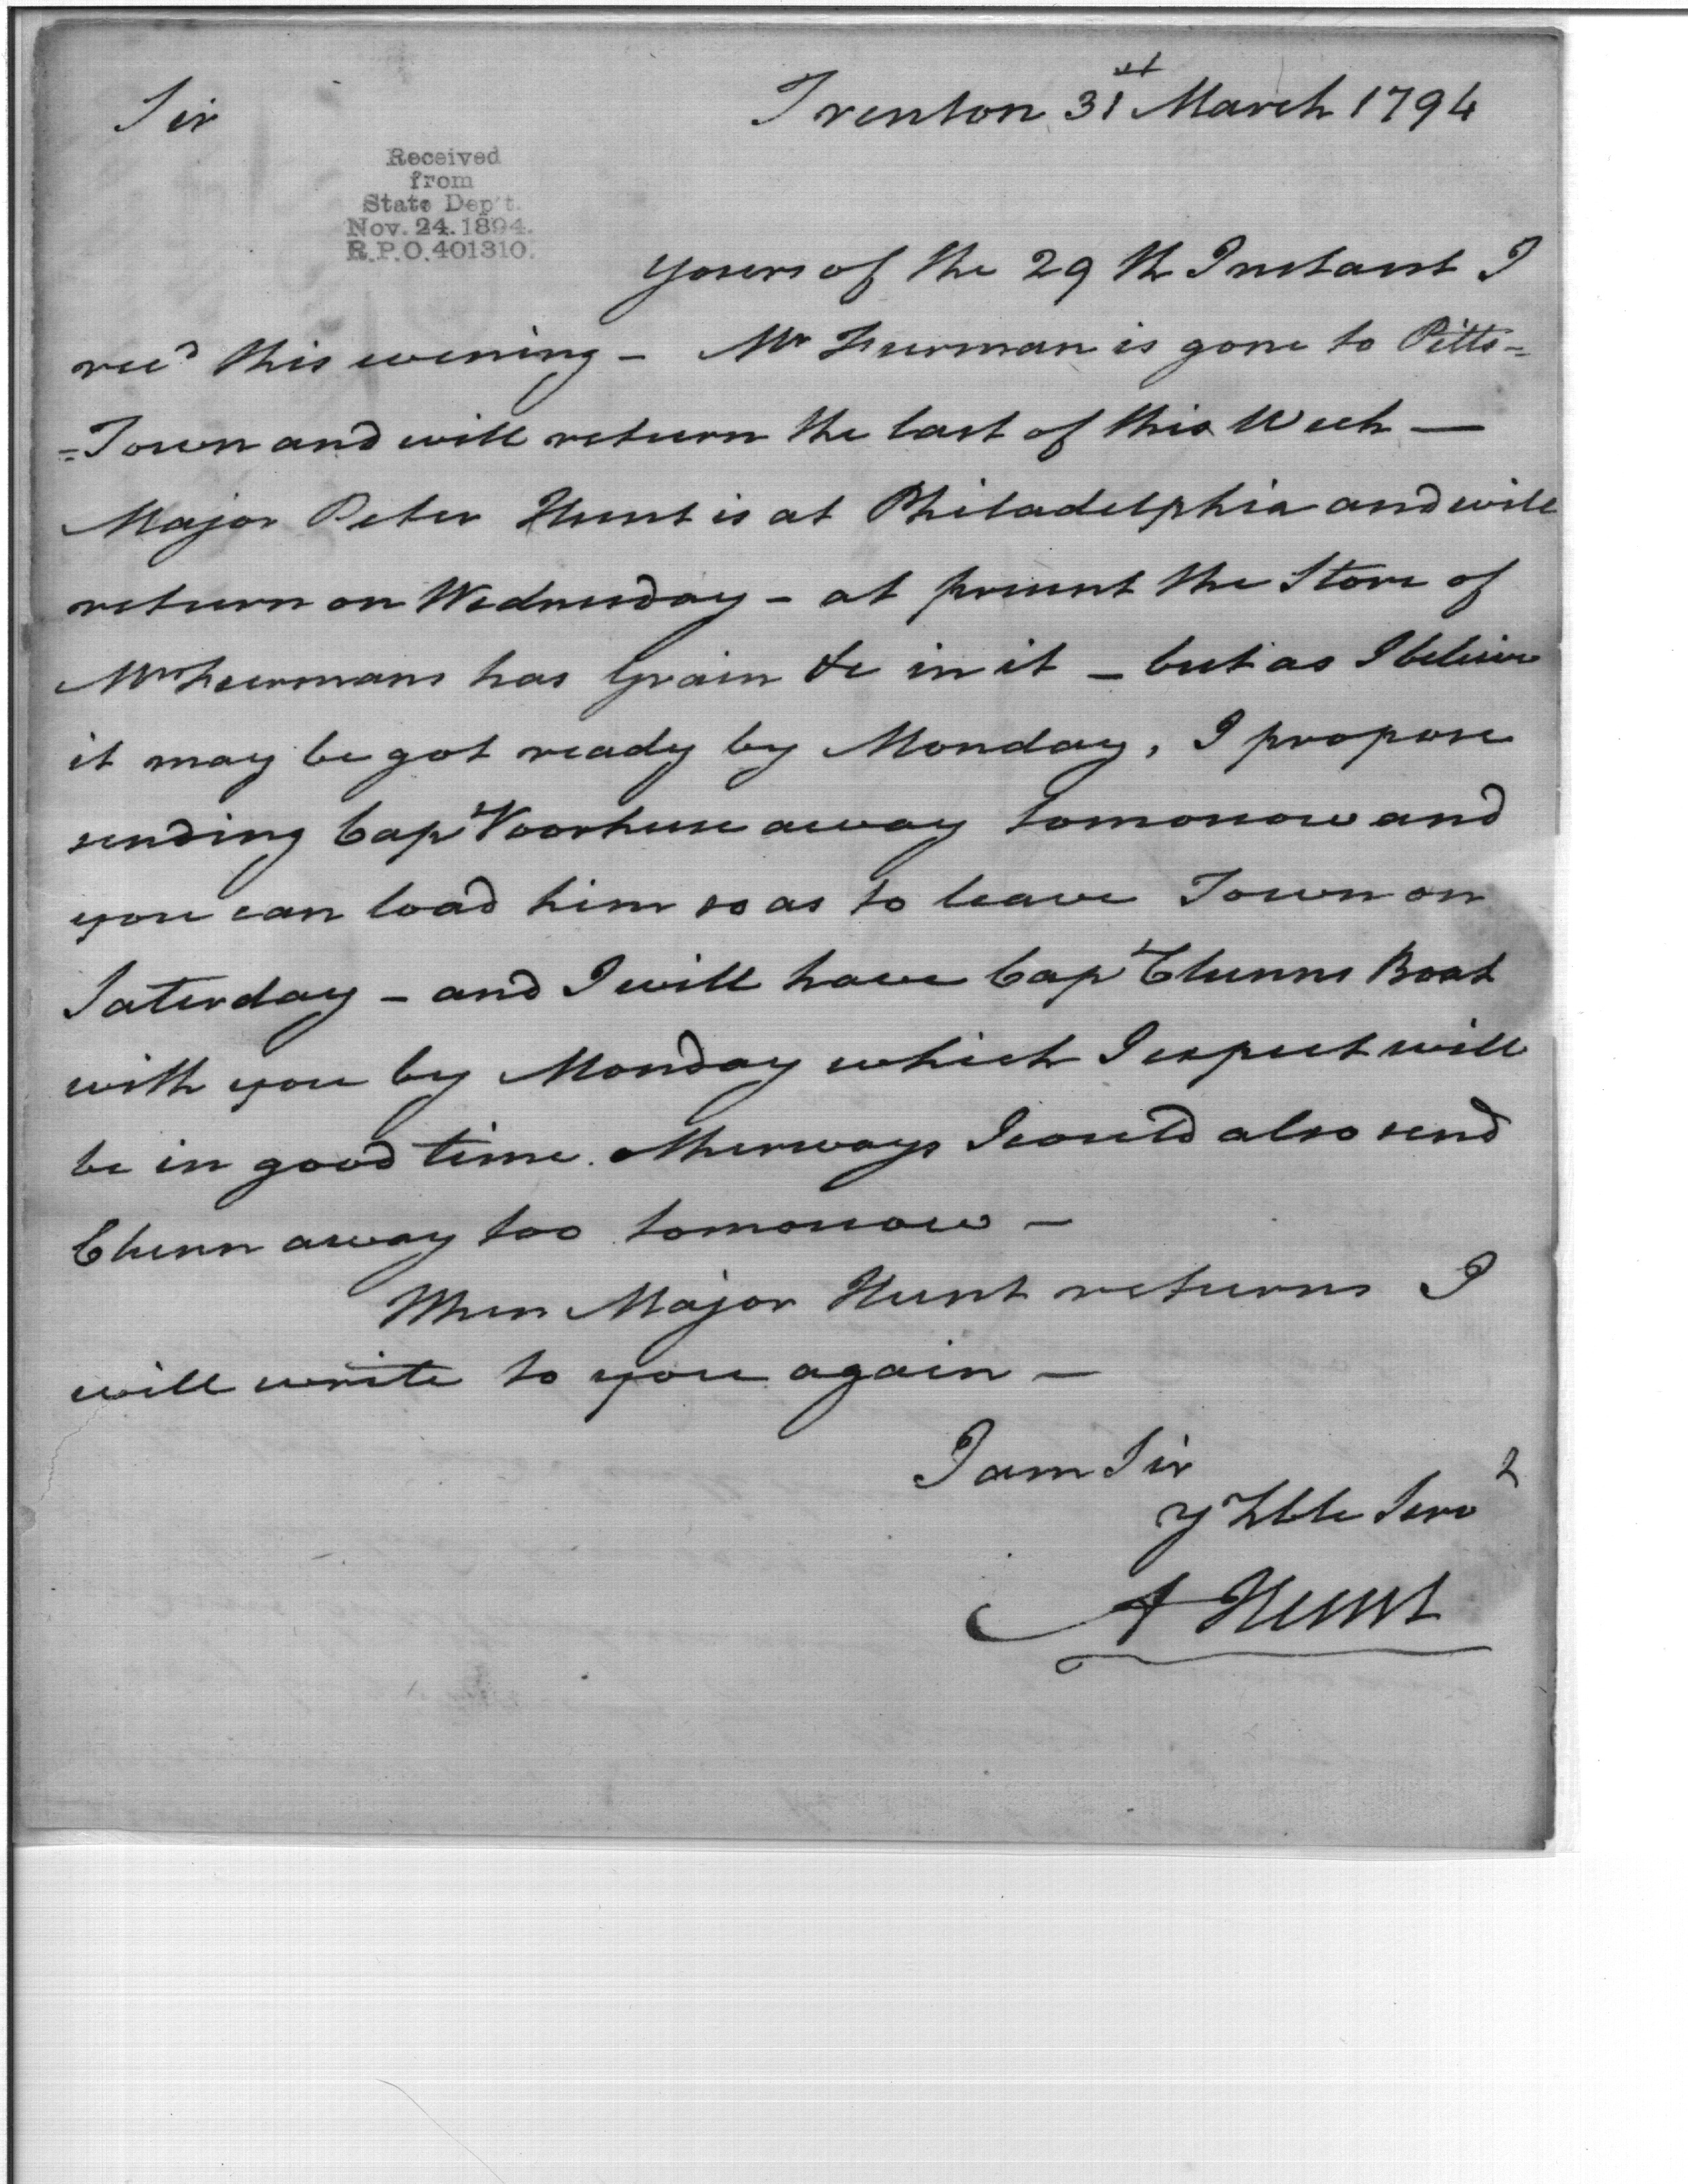 Sir
Trenton 31st March 1794
Received
from
State Dep't.
Nov. 24. 1894.
R.P.O. 401310.
yours of the 29th Instant I
recd this evening - Mr Furman is gone to Pitts=
=Town and will return the last of this Week —
Major Peter Hunt is at Philadelphia and will
return on Wednesday - at present the Store of
Mr Furmans has Grain &c in it - but as I believe
it may be got ready by Monday, I propose
sending Capt Voorhese away tomorrow and
you can load him so as to leave Town on
Saterday - and I will have Capt Clunns Boat
with you by Monday which I expect will
be in good time. otherways I could also send
Clunn away too tomorrow -
When Major Hunt returns I
will write to you again -
I am Sir
yr Hble Servt
A Hunt